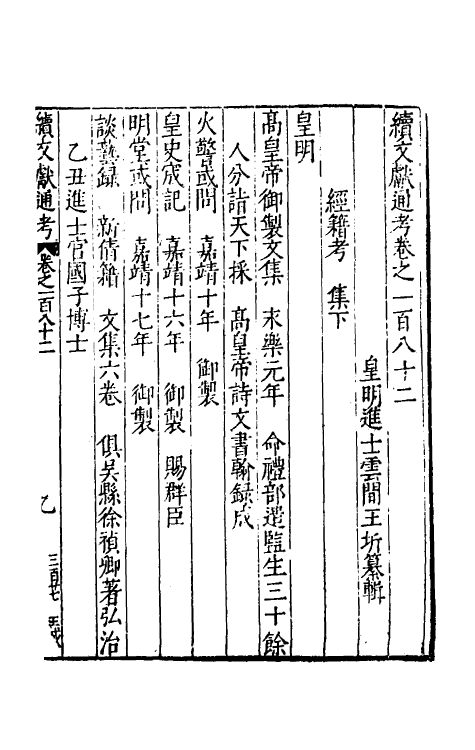 續文獻通考卷之一百八十二
皇明進士雲間王圻纂輯
經籍考 集下
皇明
高皇帝御製文集 永樂元年 命禮部選監生三十餘
人分詣天下採 高皇帝詩文書翰録成
火警或問 嘉靖十年 御製
皇史宬記 嘉靖十六年 御製 賜群臣
明堂或問 嘉靖十七年 御製
談藝録 新倩籍 文集六卷 俱吳縣徐禎卿著弘治
乙丑進士官國子博士
續文獻通考 卷之一百八十二